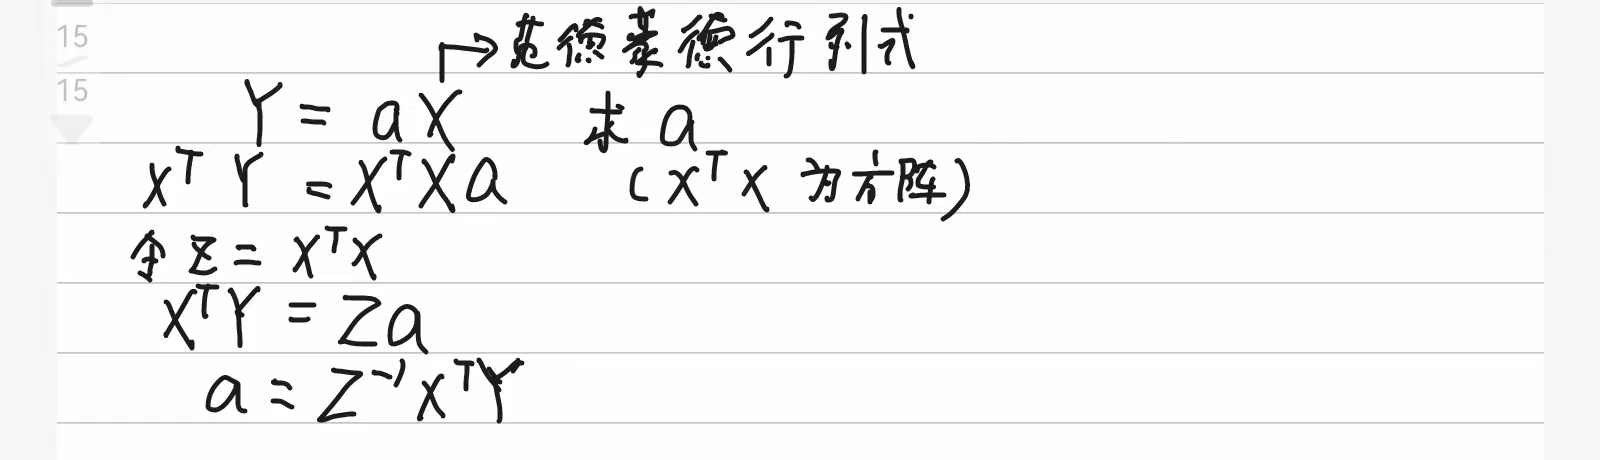 15
→范德蒙德行列式
15
Y = aX 求 a
Xᵀ Y = XᵀXa (Xᵀ X 为方阵)
令 Z = XᵀX
XᵀY = Za
a = Z⁻¹XᵀY